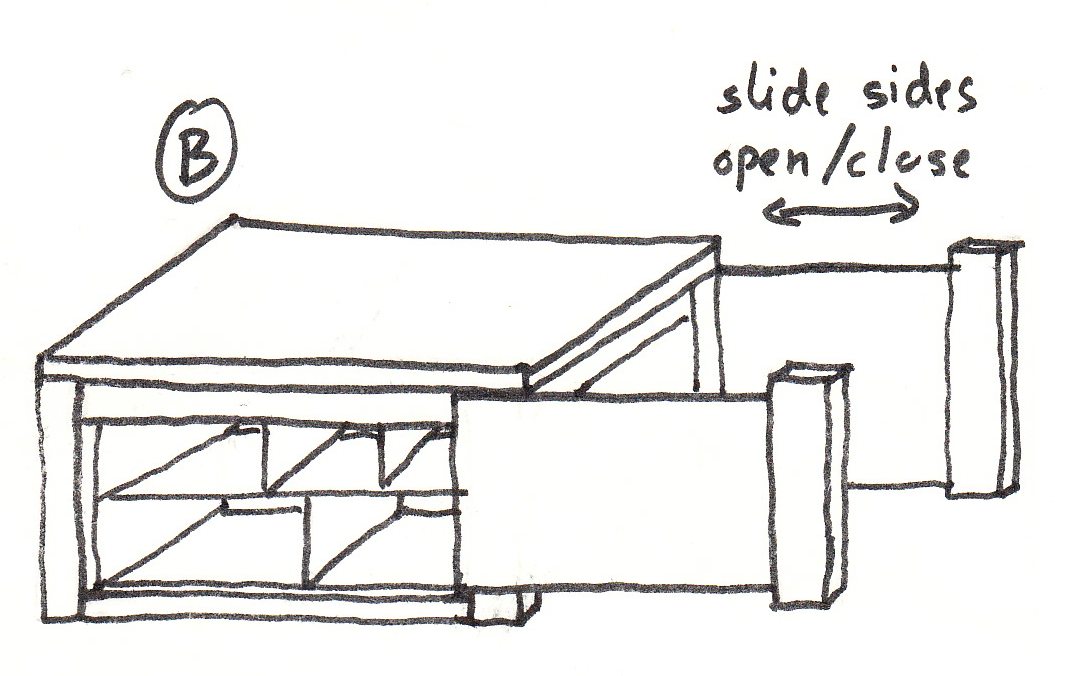 B
slide sides
open/close